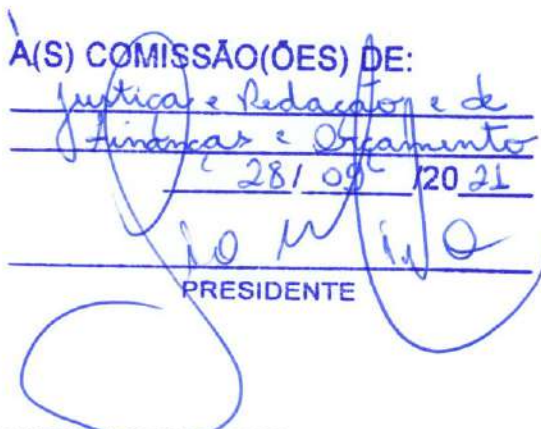 À(S) COMISSÃO(ÕES) DE:
Justiça e Redação, e de
Finanças e Orçamento
28/ 09 /20 21
PRESIDENTE